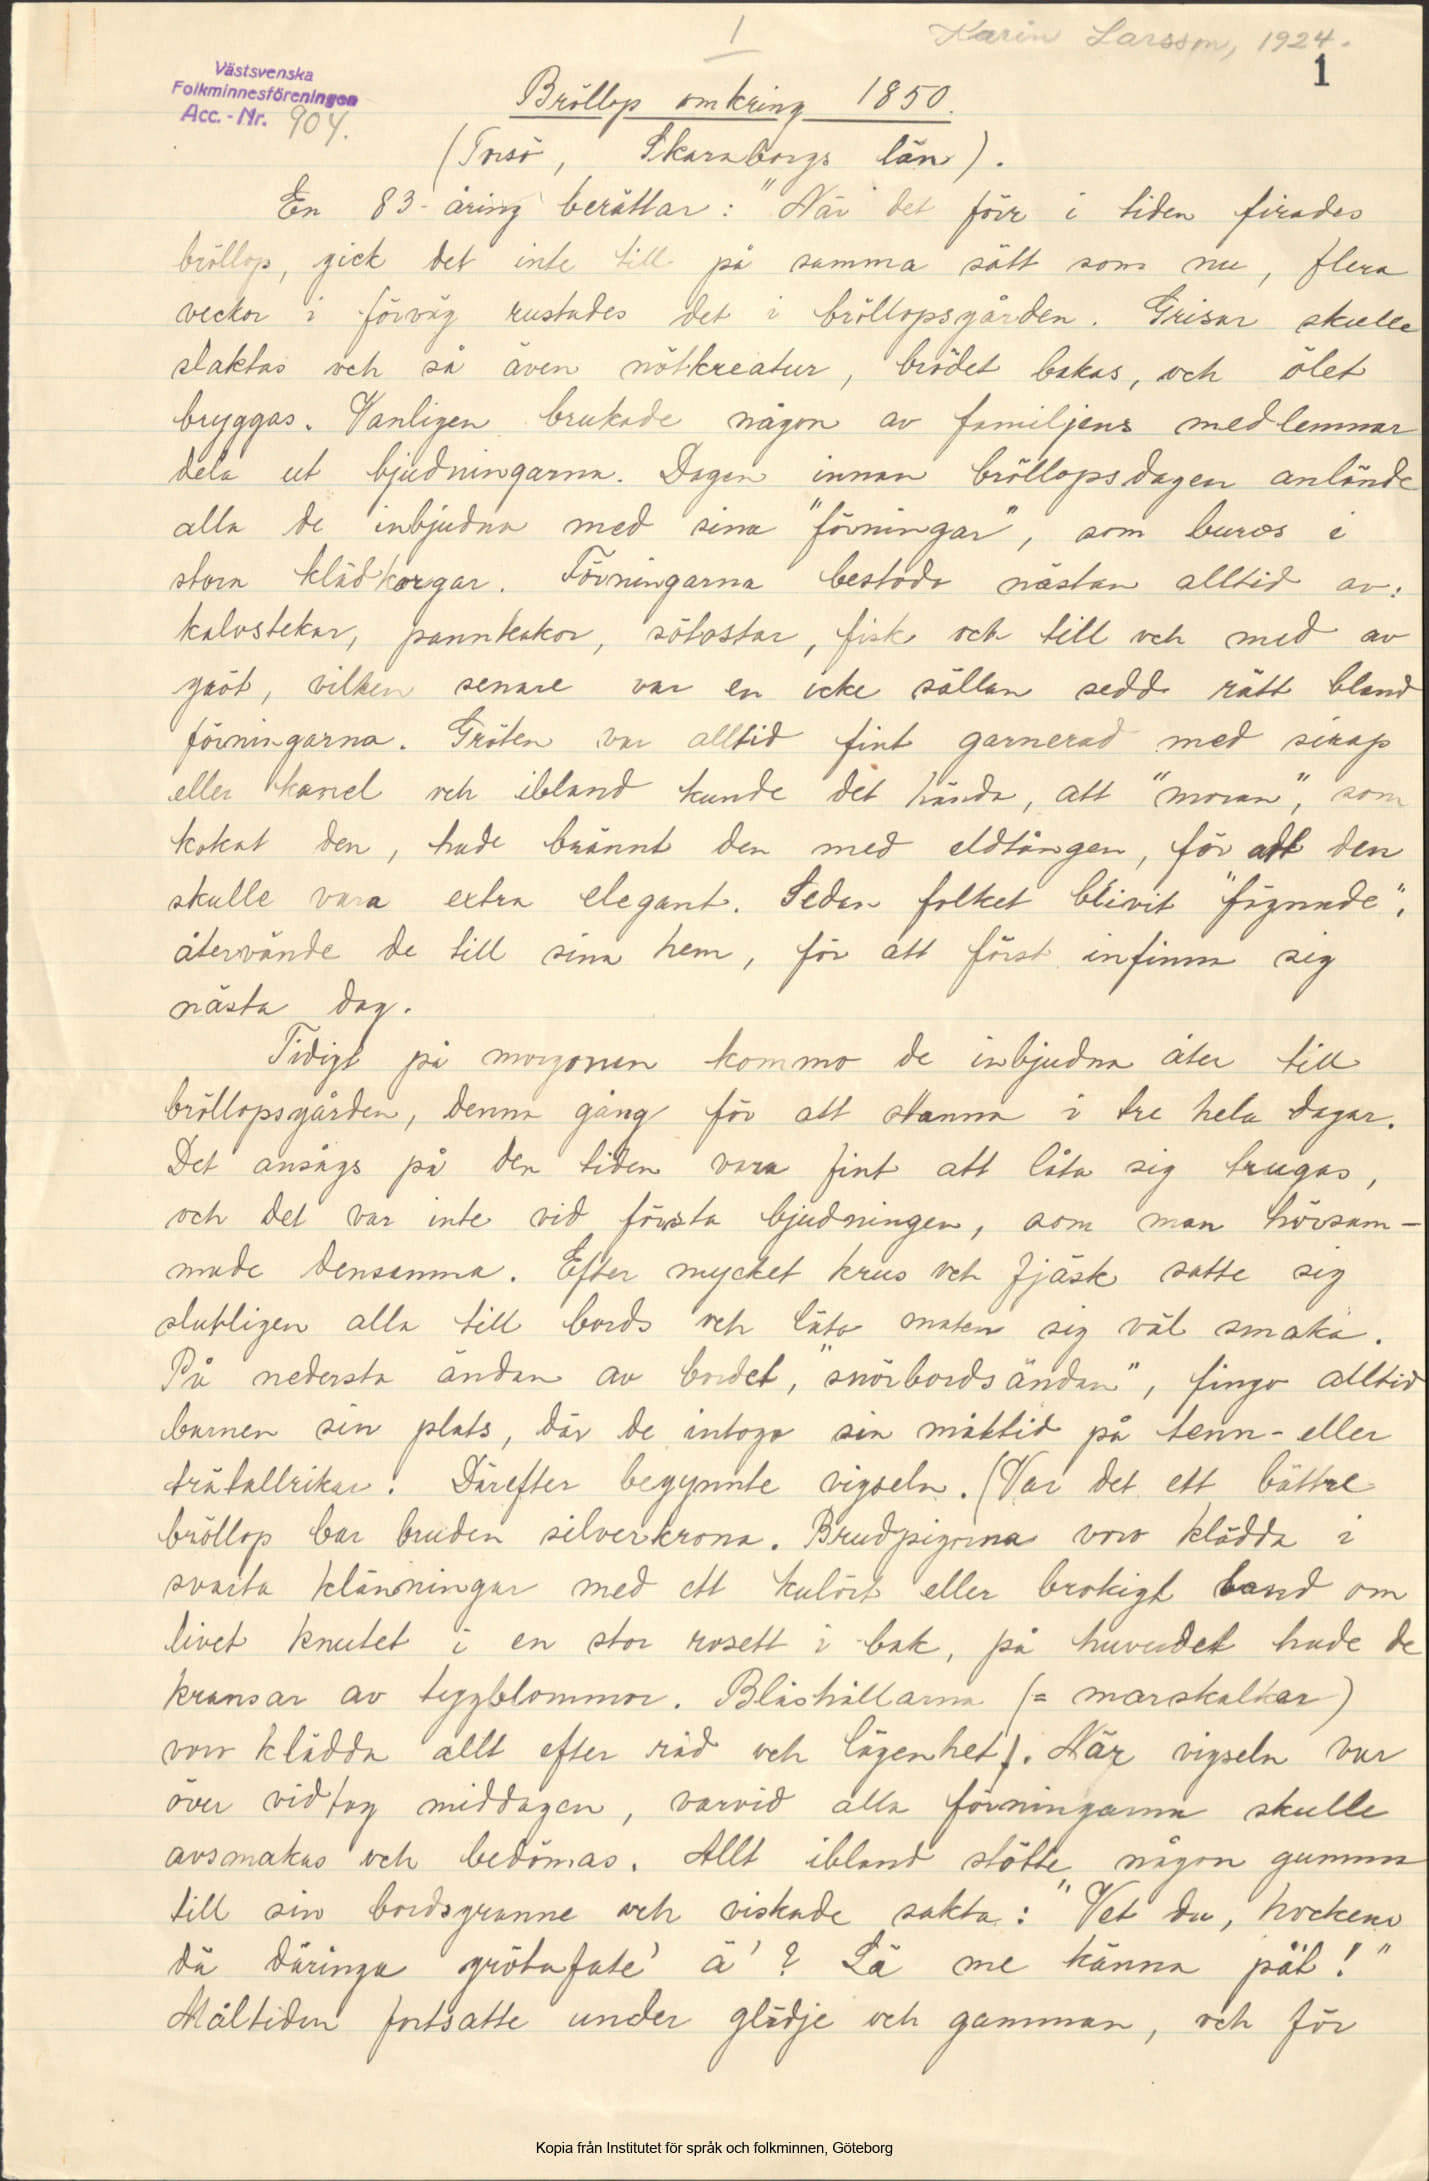 1
Karin Larsson, 1924.
1
Västsvenska
Folkminnesföreningen
Acc. - Nr. 904.
Bröllop omkring 1850.
(Torsö, Skaraborgs län).
En 83-åring berättar: "När det förr i tiden firades
bröllop, gick det inte till på samma sätt som nu, flera
veckor i förväg rustades det i bröllopsgården. Grisar skulle
slaktas och så även nötkreatur, brödet bakas, och ölet
bryggas. Vanligen brukade någon av familjens medlemmar
dela ut bjudningarna. Dagen innan bröllopsdagen anlände
alla de inbjudna med sina "förningar", som buros i
stora klädkorgar. Förningarna bestodo nästan alltid av:
kalvstekar, pannkakor, sötostar, fisk och till och med av
gröt, vilken senare var en icke sällan sedd rätt bland
förningarna. Gröten var alltid fint garnerad med sirap
eller kanel och ibland kunde det hända, att "moran", som
kokat den, hade brännt den med eldtången, för att den
skulle vara extra elegant. Sedan folket blivit "fägnade",
återvände de till sina hem, för att först infinna sig
nästa dag.
Tidigt på morgonen kommo de inbjudna åter till
bröllopsgården, denna gång för att stanna i tre hela dagar.
Det ansågs på den tiden vara fint att låta sig trugas,
och det var inte vid första bjudningen, som man hörsam-
made densamma. Efter mycket krus och fjäsk satte sig
slutligen alla till bords och läto maten sig väl smaka.
På nedersta ändan av bordet, "snörbordsändan", fingo alltid
barnen sin plats, där de intogo sin måltid på tenn- eller
trätallrikar. Därefter begynnte vigseln. (Var det ett bättre
bröllop bar bruden silverkrona. Brudpigorna voro klädda i
svarta klänningar med ett kulört eller brokigt band om
livet knutet i en stor rosett i bak, på huvudet hade de
kransar av tygblommor. Blåshållarna (= marskalkar)
voro klädda allt efter råd och lägenhet). När vigseln var
över vidtog middagen, varvid alla förningarna skulle
avsmakas och bedömas. Allt ibland stötte någon gumma
till sin bordsgranne och viskade sakta: "Vet du, hockens
dä däringa grötafate' ä'? Lä me känna pät!"
Måltiden fortsatte under glädje och gamman, och för
Kopia från Institutet för språk och folkminnen, Göteborg